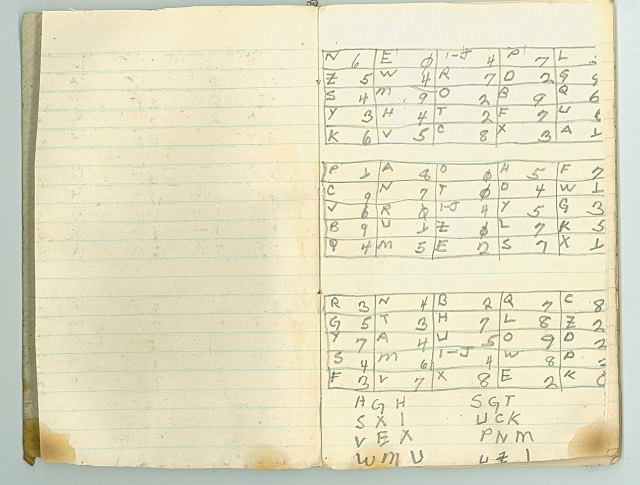 N 6 E 0 I-J 4 P 7 L
Z 5 W 4 R 7 D 2 G 9
S 4 M 9 O 2 B 9 Q 6
Y 3 H 4 T 2 F 7 U
K 6 V 5 C 8 X 3 A 1
P 1 A 8 O 0 H 5 F 2
C 9 N 7 T 0 D 4 W 1
V 6 R 0 I-J 4 Y 5 G 3
B 9 U 1 Z 0 L 7 K 5
Q 4 M 5 E 2 S 7 X 1
R 3 N 4 B 2 Q 7 C 8
G 5 T 3 H 7 L 8 Z 2
Y 7 A 4 U 5 O 9 D 2
S 4 M 6 I-J 4 W 8 P
F 3 V 7 X 8 E 2 K 0
H G H S G T
S X I U C K
V E X P N M
W M U U Z I